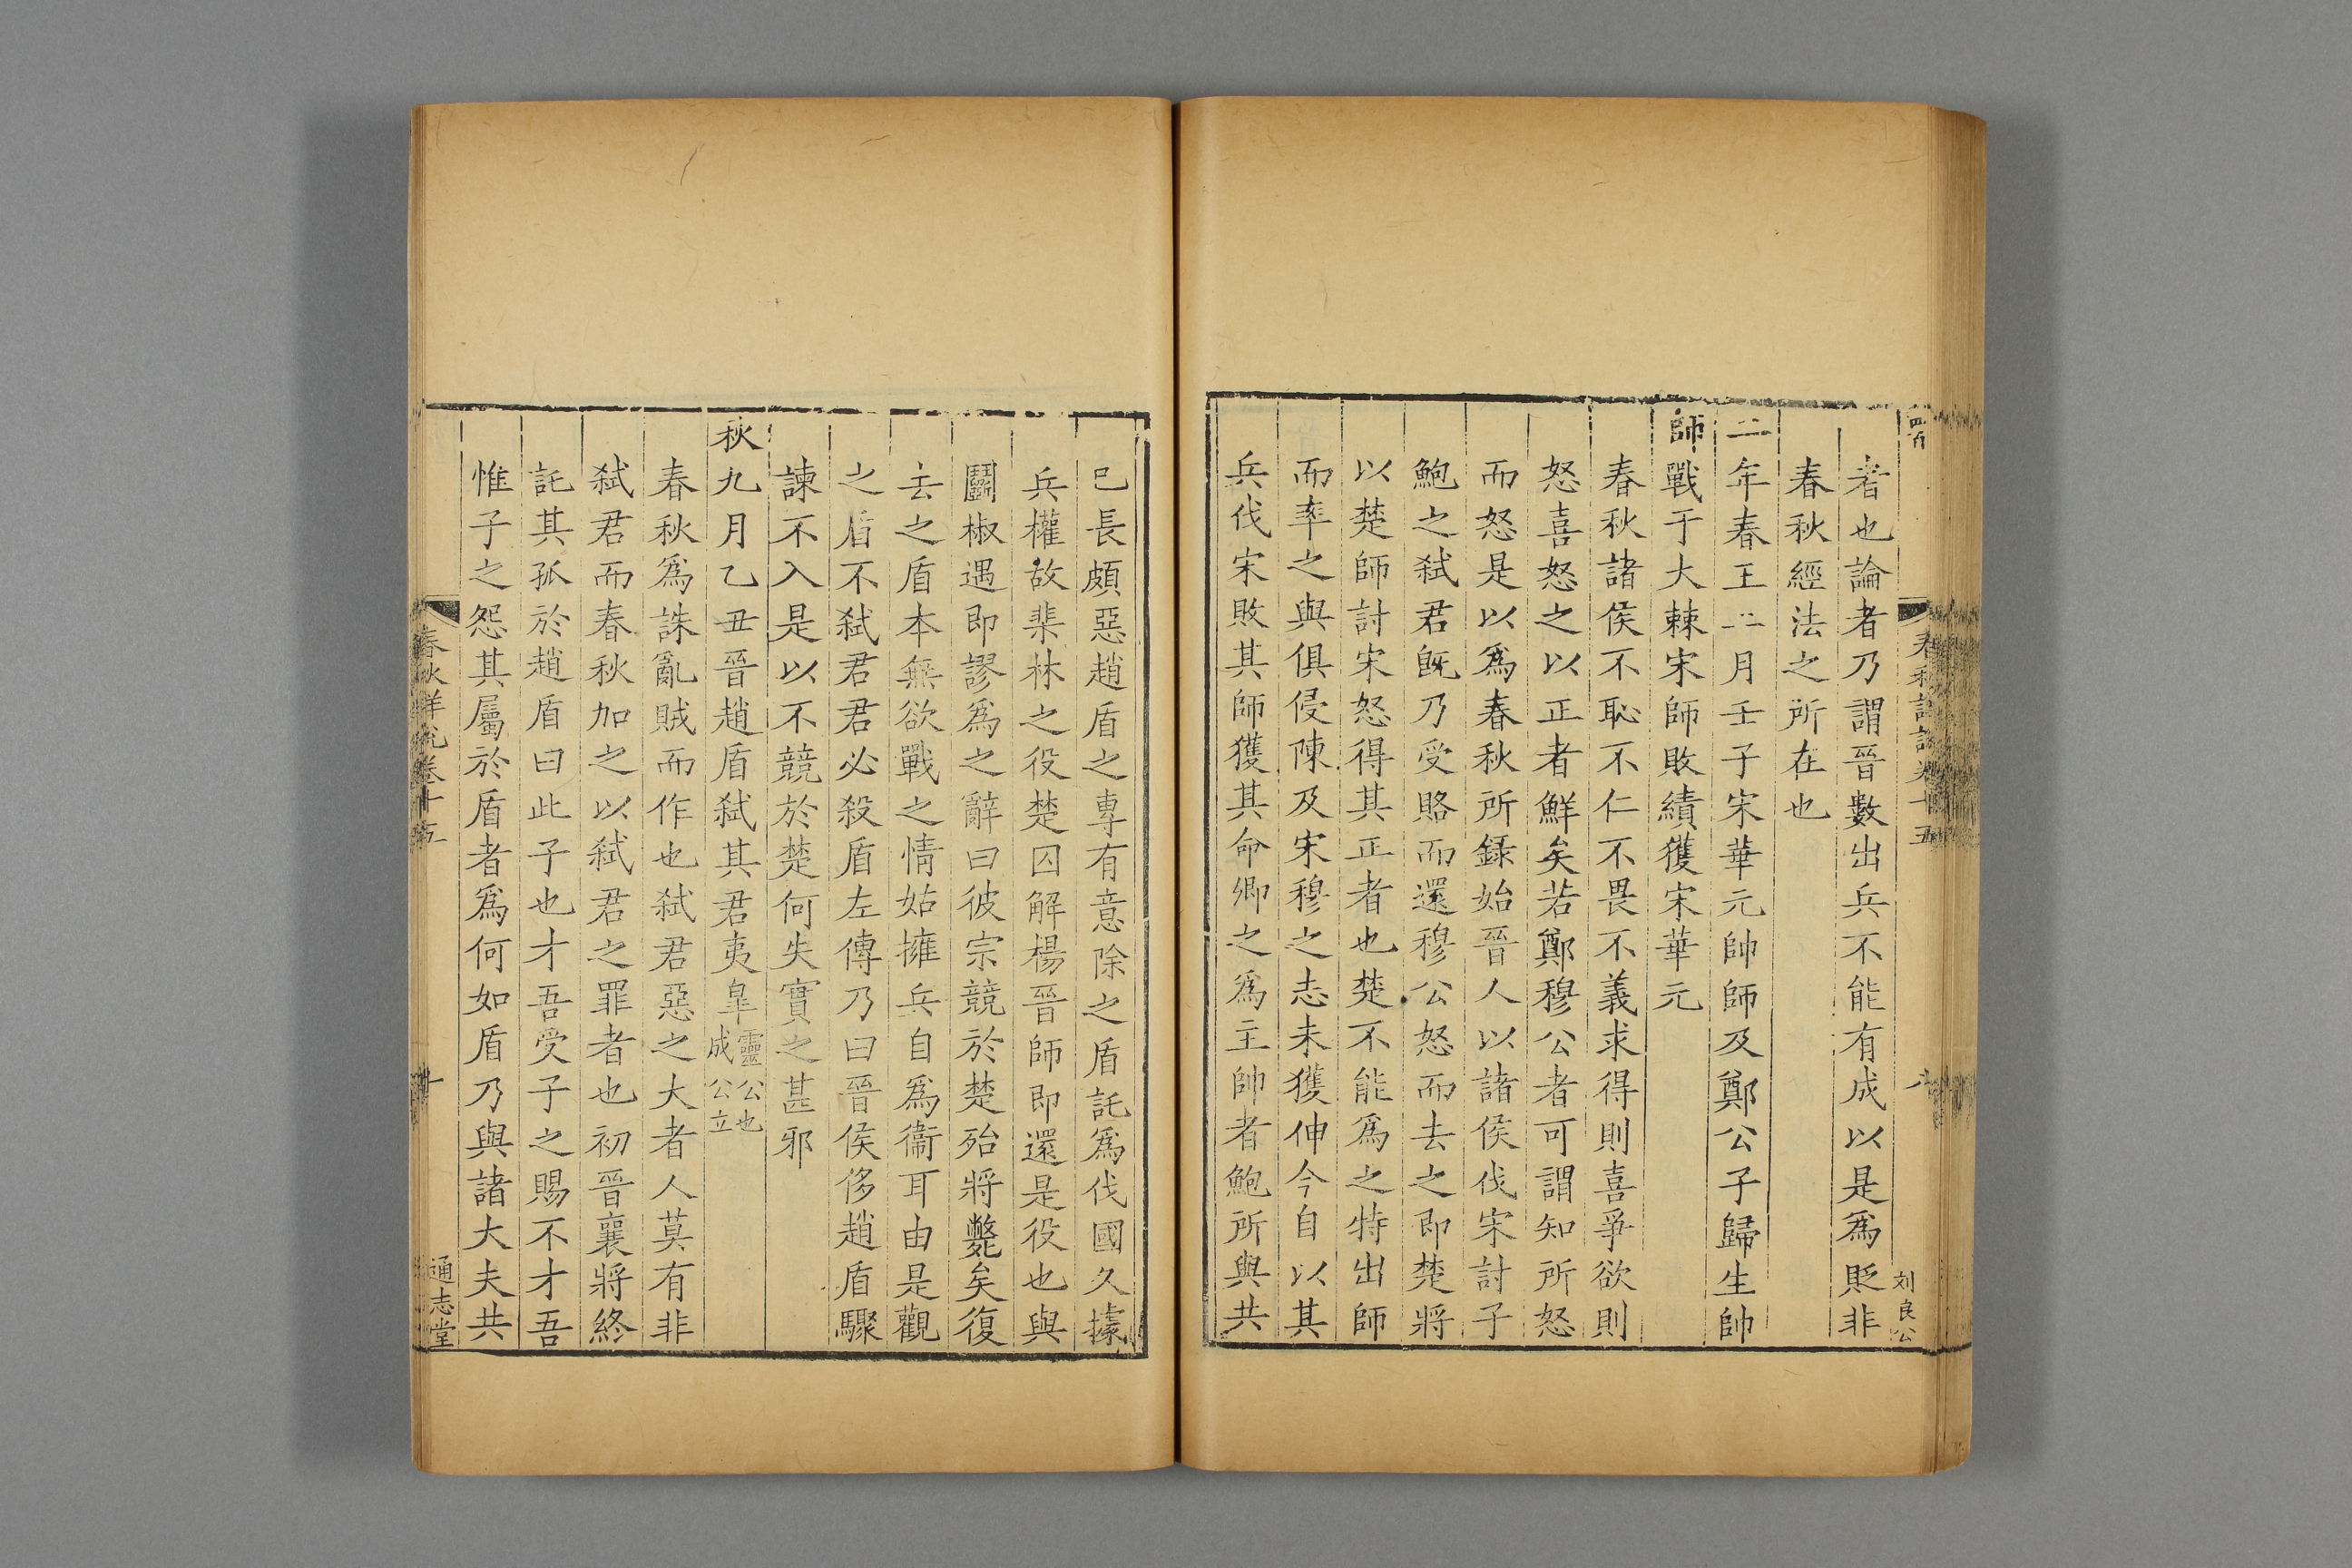 春秋詳說卷十五
八
刘良公
者也論者乃謂晉數出兵不能有成以是爲貶非
春秋經法之所在也
二年春王二月壬子宋華元帥師及鄭公子歸生帥
師戰于大棘宋師敗績獲宋華元
春秋諸侯不恥不仁不畏不義求得則喜爭欲則
怒喜怒之以正者鮮矣若鄭穆公者可謂知所怒
而怒是以爲春秋所錄始晉人以諸侯伐宋討子
鮑之弑君旣乃受賂而還穆公怒而去之即楚將
以楚師討宋怒得其正者也楚不能爲之特出師
而率之與俱侵陳及宋穆之志未獲伸今自以其
兵伐宋敗其師獲其命卿之爲主帥者鮑所與共
已長頗惡趙盾之專有意除之盾託爲伐國久據
兵權故棐林之役楚囚解楊晉師即還是役也與
鬭椒遇即謬爲之辭曰彼宗競於楚殆將斃矣復
去之盾本無欲戰之情姑擁兵自爲衞耳由是觀
之盾不弑君君必殺盾左傳乃曰晉侯侈趙盾驟
諫不入是以不競於楚何失實之甚邪
秋九月乙丑晉趙盾弑其君夷皐靈公也成公立
春秋爲誅亂賊而作也弑君惡之大者人莫有非
弑君而春秋加之以弑君之罪者也初晉襄將終
託其孤於趙盾曰此子也才吾受子之賜不才吾
惟子之怨其屬於盾者爲何如盾乃與諸大夫共
春秋詳說卷十五
十
通志堂